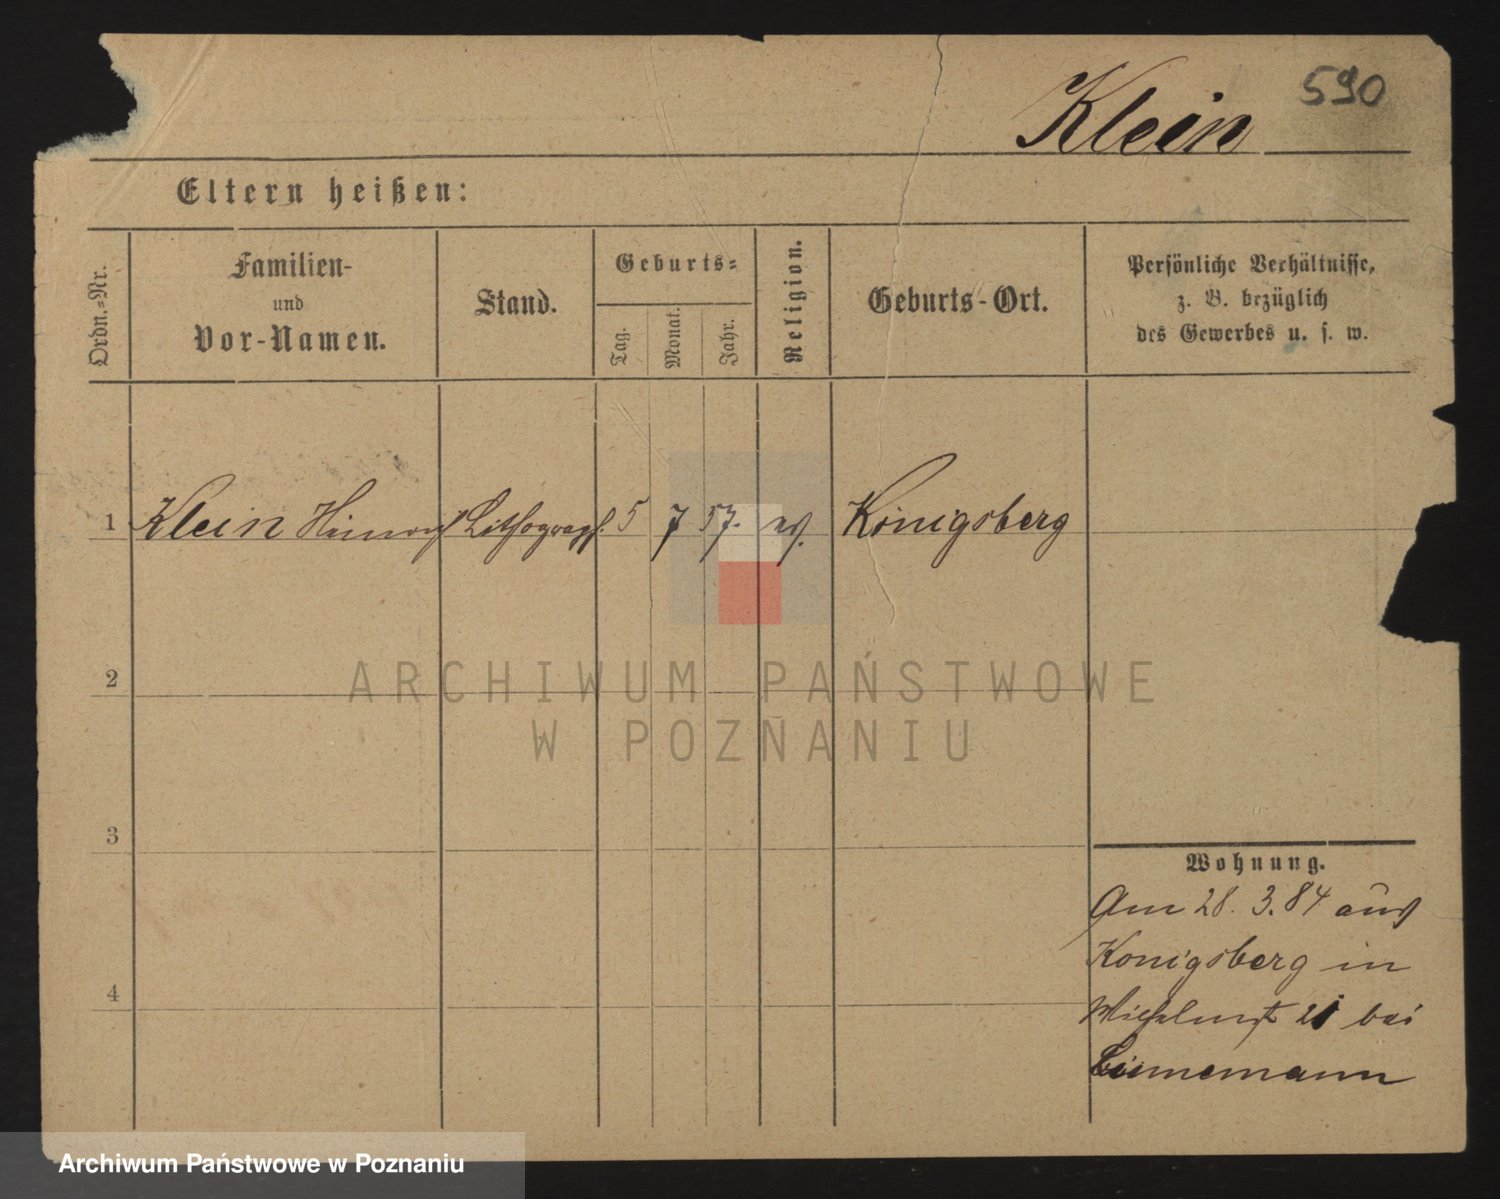 590
Klein
Eltern heißen:
Ordn.-Nr.
Familien-
und
Vor-Namen.
Stand.
Geburts-
Tag.
Monat.
Jahr.
Religion.
Geburts-Ort.
Persönliche Verhältnisse,
z. B. bezüglich
des Gewerbes u. s. w.
1 Klein Heinrich Lithograph. 5 7 57. ev. Königsberg
2
ARCHIWUM PAŃSTWOWE
W POZNANIU
3
4
Wohnung.
Am 28. 3. 84 aus
Konigsberg in
21 bei
Archiwum Państwowe w Poznaniu